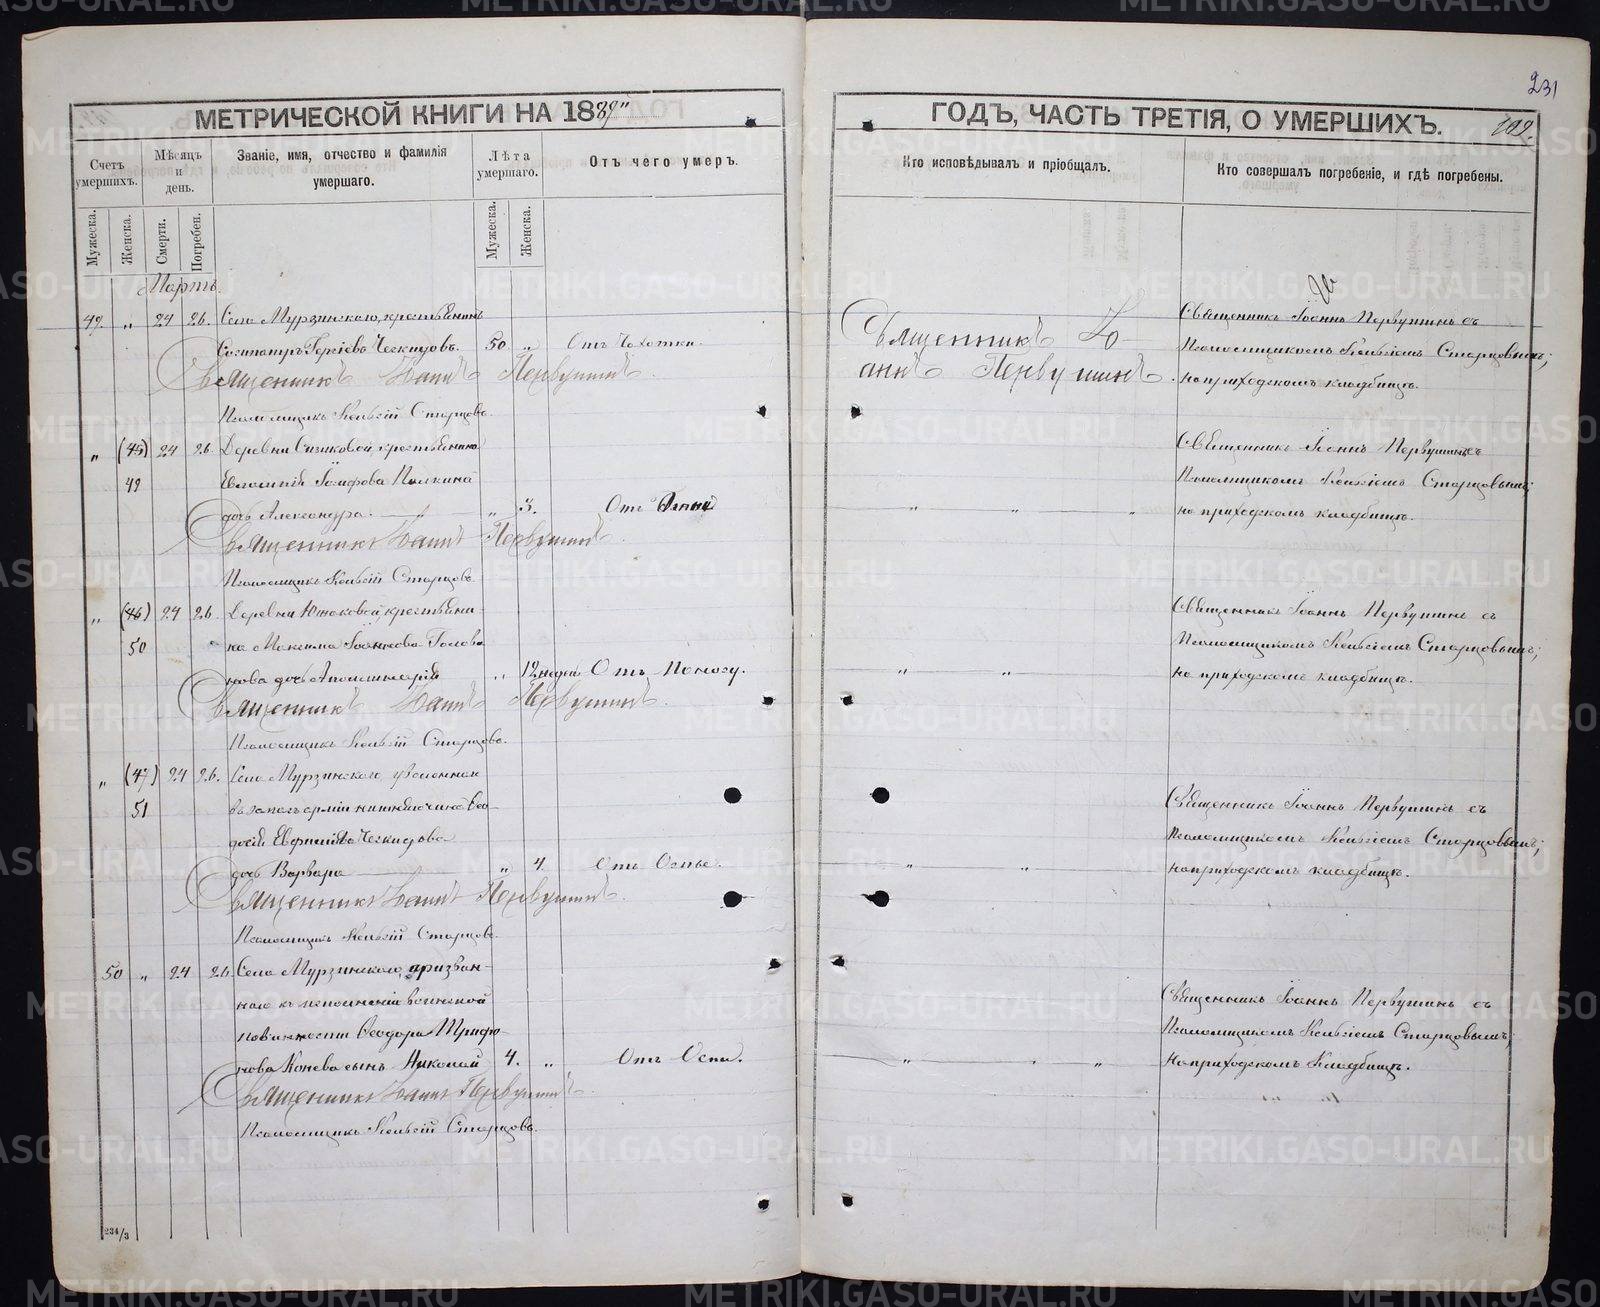 231
МЕТРИЧЕСКОЙ КНИГИ НА 1889
Счетъ умершихъ.
Мѣсяцъ и день.
Званіе, имя, отчество и фамилія умершаго.
Лѣта умершаго.
Отъ чего умеръ.
Мужеска.
Женска.
Смерти.
Погребен.
Мужеска.
Женска.
Мартъ.
49. „ 24 26. Села Мурзинскаго, крестьянинъ
Чеснидовъ. 50 „ Отъ Чахотки.
Священникъ Іоаннъ Первушинъ.
Псаломщикъ Старцовъ.
„ (45) 24 26. Деревни крестьянина
49
дочь Александра. „ 3. Отъ
Священникъ Іоаннъ Первушинъ.
Псаломщикъ Старцовъ.
„ (46) 24 26. Деревни крестьяни-
50 на Максима Голова-
нова дочь Аполлинарія „ 12 недѣл. Отъ Поносу.
Священникъ Іоаннъ Первушинъ.
Псаломщикъ Старцовъ.
„ (47) 24 26. Села Мурзинскаго, уволеннаи
51 въ запасъ арміи нижняго чина Ѳео-
досія
дочь Варвара „ 4. Отъ Оспы.
Священникъ Іоаннъ Первушинъ.
Псаломщикъ Старцовъ.
50 „ 24 26 Села Мурзинскаго, призван-
наго къ исполненію воинской
повинности Ѳеодора Трифо-
нова Конева сынъ Николай 4. „ Отъ Оспы.
Священникъ Іоаннъ Первушинъ.
Псаломщикъ Старцовъ.
234/3
ГОДЪ, ЧАСТЬ ТРЕТІЯ, О УМЕРШИХЪ.
Кто исповѣдывалъ и пріобщалъ.
Кто совершалъ погребеніе, и гдѣ погребены.
Священникъ Іо-
аннъ Первушинъ.
Священникъ Іоаннъ Первушинъ съ
Псаломщикомъ Старцовымъ;
на приходскомъ кладбищѣ.
Священникъ Іоаннъ Первушинъ съ
Псаломщикомъ Старцовымъ;
на приходскомъ кладбищѣ.
Священникъ Іоаннъ Первушинъ съ
Псаломщикомъ Старцовымъ;
на приходскомъ кладбищѣ.
Священникъ Іоаннъ Первушинъ съ
Псаломщикомъ Старцовымъ;
на приходскомъ кладбищѣ.
Священникъ Іоаннъ Первушинъ съ
Псаломщикомъ Старцовымъ;
на приходскомъ кладбищѣ.
METRIKI.GASO-URAL.RU